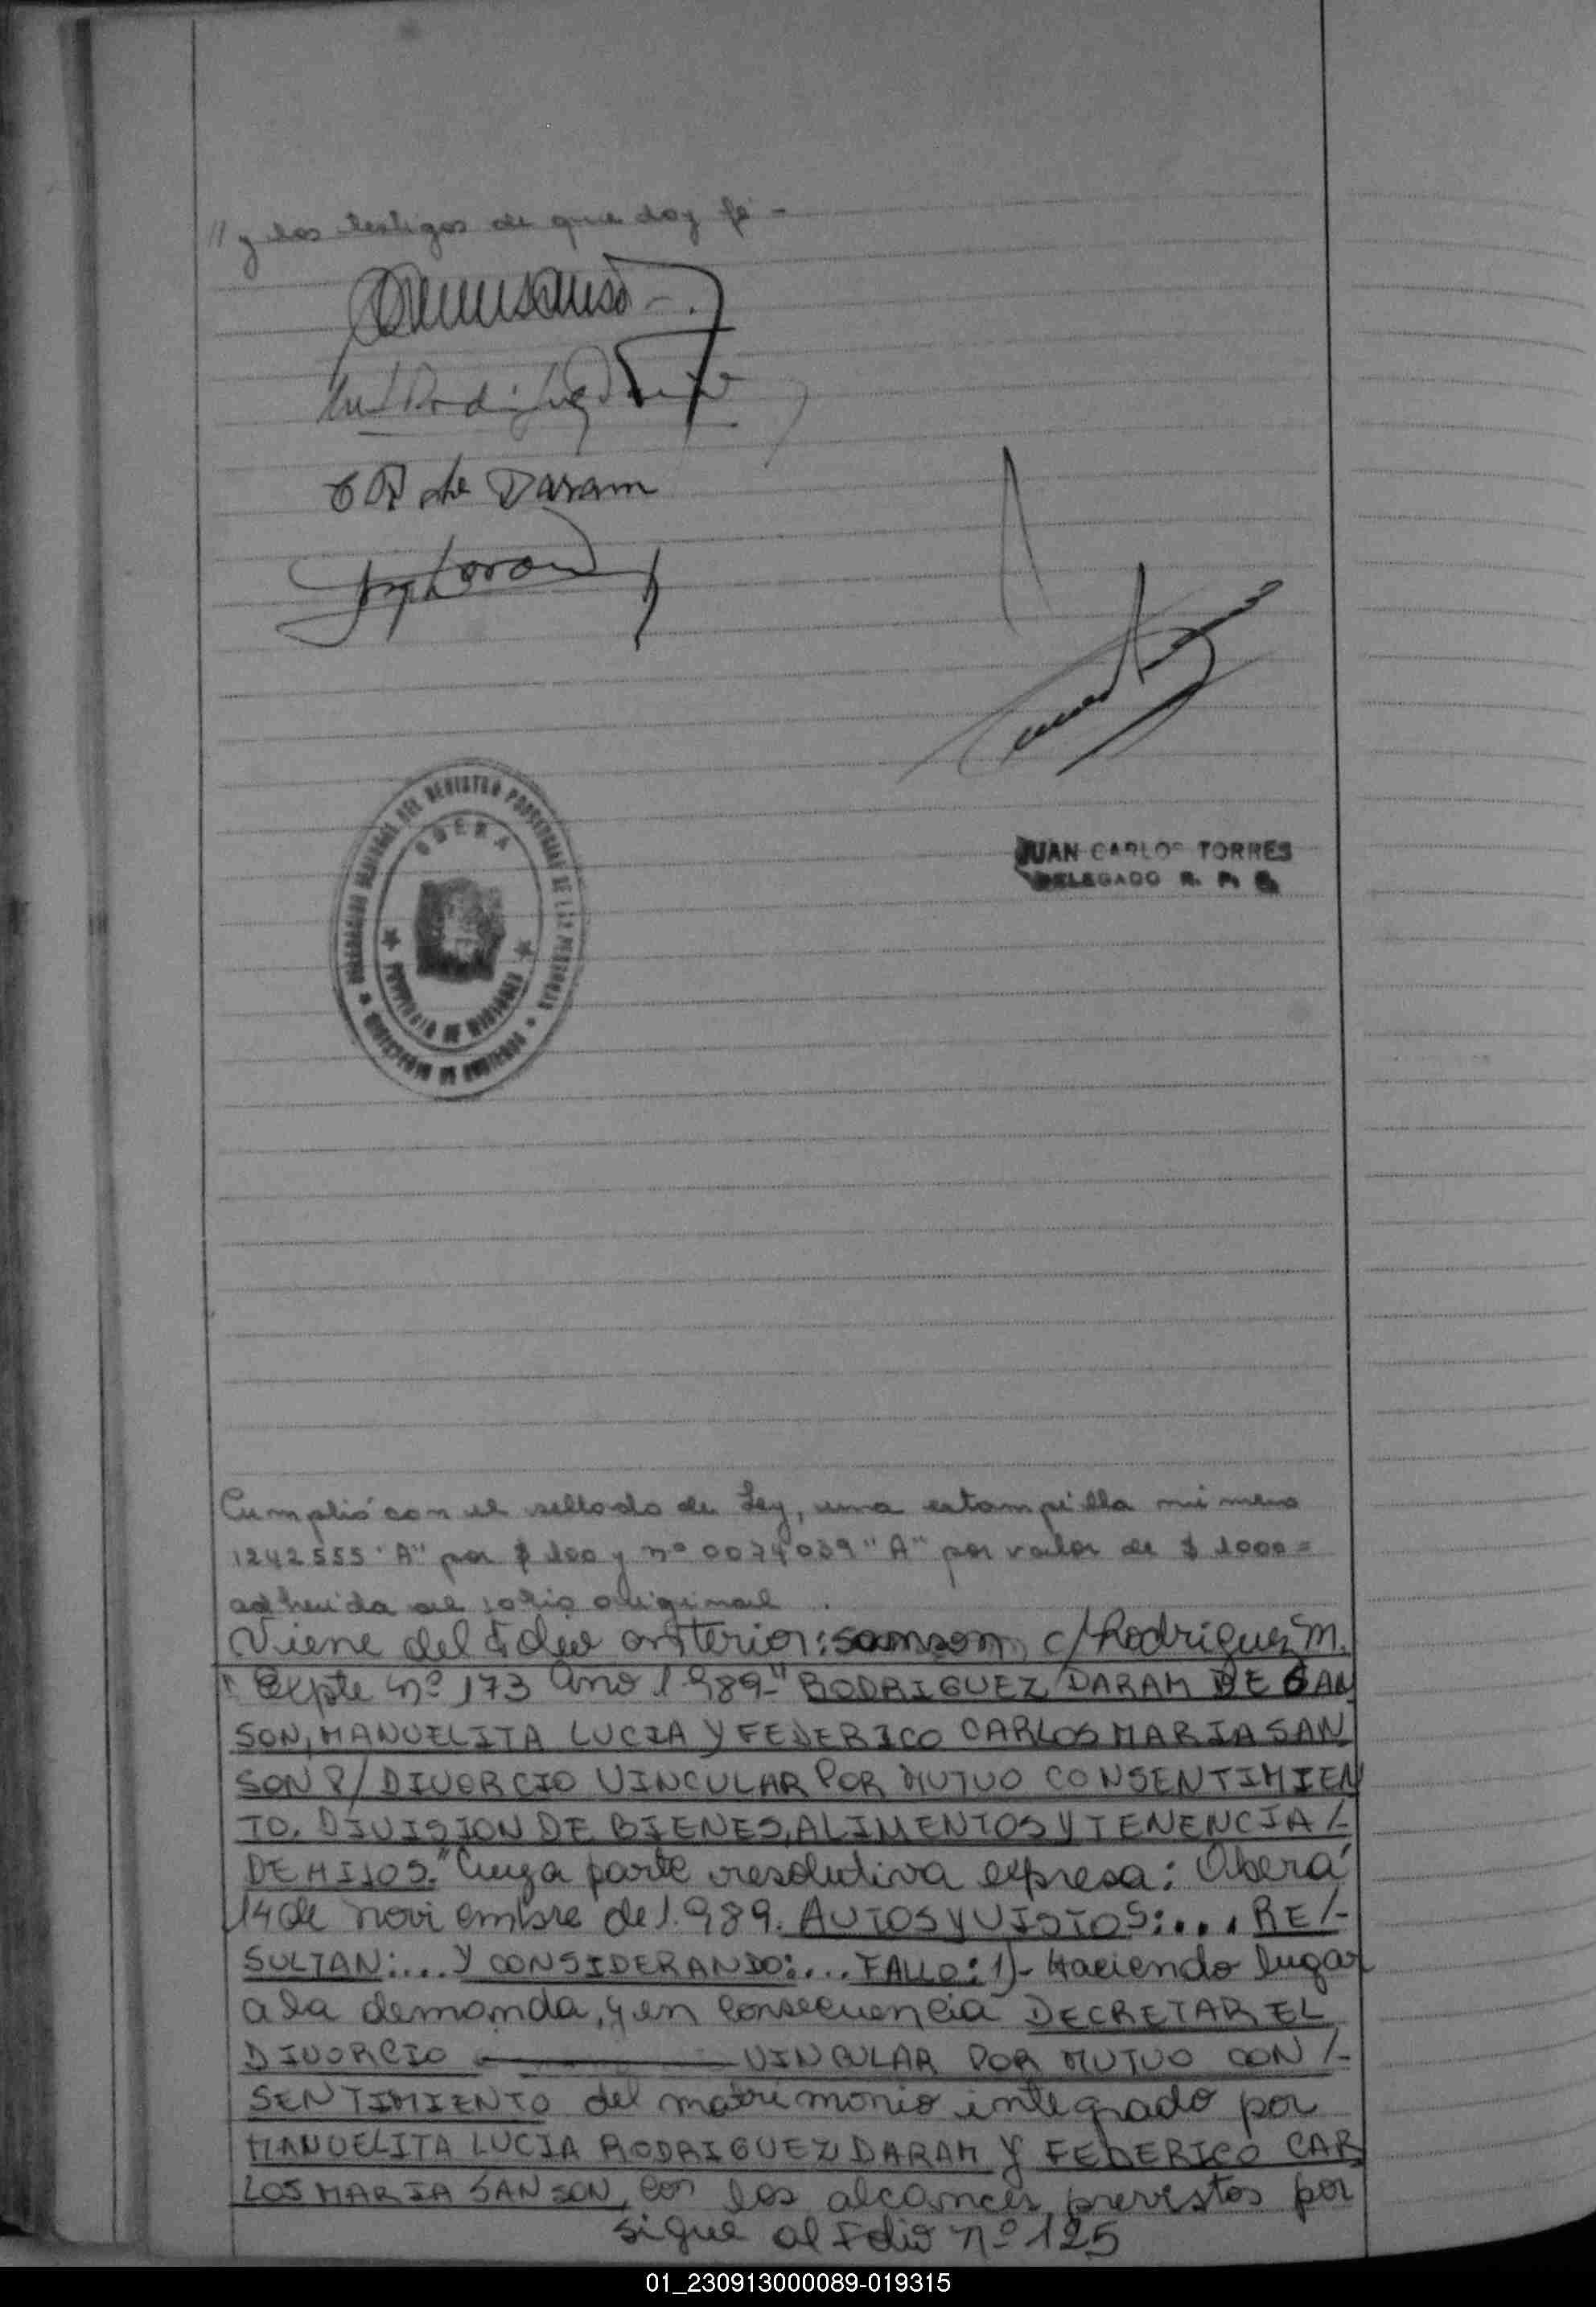 // y los testigos de que doy fé -
de Daram
DELEGACION DEL REGISTRO PROVINCIAL DE LAS PERSONAS
OBERA
PROVINCIA DE MISIONES
JUAN CARLOS TORRES
DELEGADO R. P. P.
Cumplió con el sellado de Ley, una estampilla número
1242555 "A" por $ 100 y nº 0074039 "A" por valor de $ 1000=
adherida al folio original.
Viene del Folio anterior: samson, c/Rodriguez M.
Expte nº 173 Año 1989-"RODRIGUEZ DARAM DE SAN
SON, MANUELITA LUCIA Y FEDERICO CARLOS MARIA SAN
SON P/ DIVORCIO VINCULAR POR MUTUO CONSENTIMIEN
TO. DIVISION DE BIENES, ALIMENTOS Y TENENCIA /-
DE HIJOS." Cuya parte resolutiva expresa: Oberá
14 de noviembre de 1.989. AUTOS Y VISTOS:... RE/-
SULTAN:... Y CONSIDERANDO:... FALLO: 1)- Haciendo lugar
a la demanda, y en consecuencia DECRETAR EL
DIVORCIO ——— VINCULAR POR MUTUO CON/-
SENTIMIENTO del matrimonio integrado por
MANUELITA LUCIA RODRIGUEZ DARAM Y FEDERICO CAR
LOS MARIA SANSON, con los alcances previstos por
sigue al Folio nº 125
01_230913000089-019315